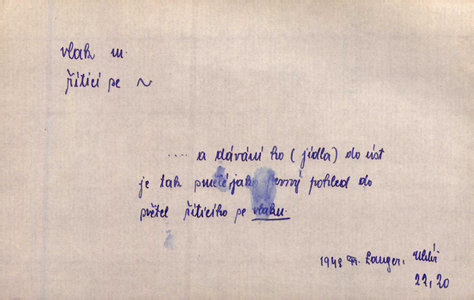 vlak m.
řítící se ~
.... a dávání ho (jídla) do úst
je tak jako pohled do
světel řítícího se vlaku.
1948 Fr. Langer,
22, 20